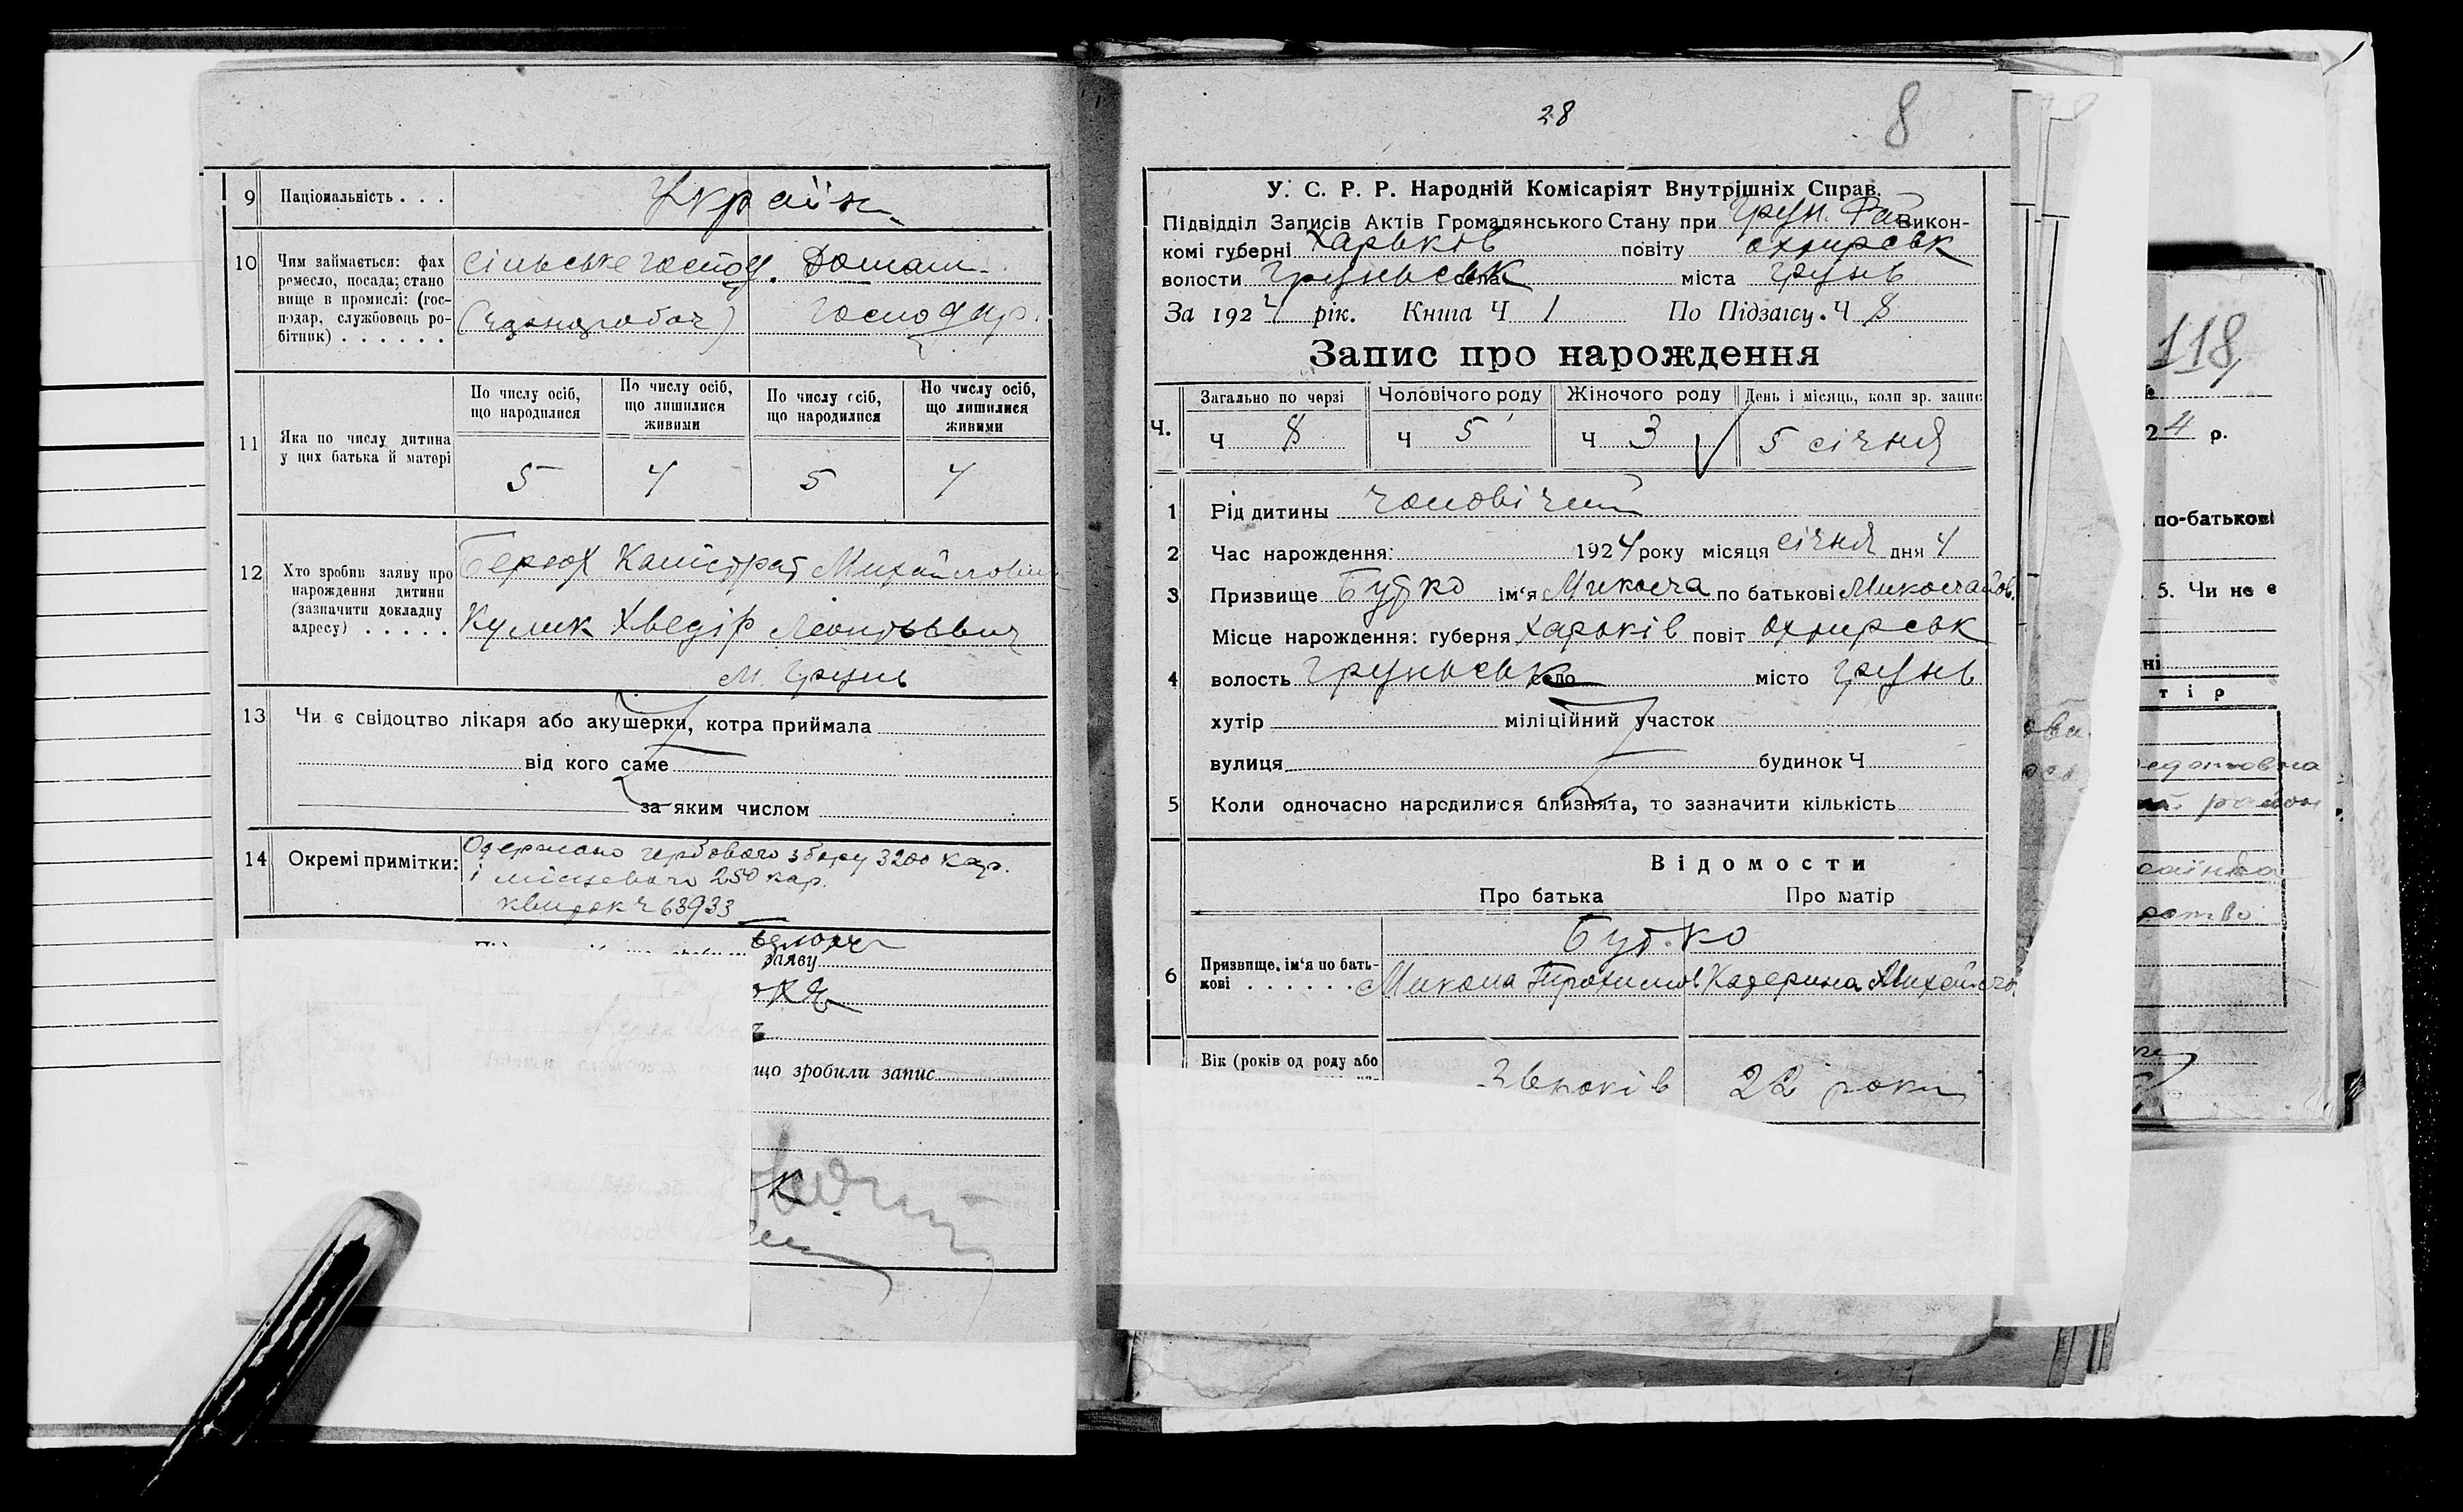 9 Національність . . . Україн
10 Чим займається: фах ремесло, посада; становище в промислі: (господар, службовець робітник) . . . . . .
Сільське господ. Домаш.
(Чорнороб) господар.
11 Яка по числу дитина у цих батька й матері
По числу осіб, що народилися
По числу осіб, що лишилися живими
По числу осіб, що народилися
По числу осіб, що лишилися живими
5 4 5 4
12 Хто зробив заяву про нарождення дитини (зазначити докладну адресу) . . . . .
Калістрат Михайлович
Кулик Хведір Леонтьевич
м. Грунь
13 Чи є свідоцтво лікаря або акушерки, котра приймала
від кого саме
за яким числом
14 Окремі примітки: Одержано гербового збору 3200 кар.
і місцевого 250 кар.
квиток ч 63933
заяву
що зробили запис
28
8
У. С. Р. Р. Народній Комісаріят Внутрішніх Справ.
Підвідділ Записів Актів Громадянського Стану при Грун. Рай Викон-
комі губерні Харьків повіту Охтирськ
волости Груньськ села міста Грунь
За 1924 рік. Книга Ч 1 По Підзагсу. Ч 8
Запис про нарождення
Ч. Загально по черзі Чоловічого роду Жіночого роду День і місяць, коли зр. запис
Ч 8 Ч 5 Ч 3 5 січня
1 Рід дитины чоловічий
2 Час нарождення: 1924 року місяця січня дня 4
3 Призвище Бутко ім'я Микола по батькові Миколайов.
Місце нарождення: губерня Харьків повіт Охтирськ
4 волость Груньськ село місто Грунь
хутір міліційний участок
вулиця будинок Ч
5 Коли одночасно народилися близнята, то зазначити кількість
Відомости
Про батька Про матір
Бутко
6 Призвище, ім'я по батькові . . . . . . Микола Трохимов Катерина Михайло
Вік (років од роду або
36 років 22 роки
118
24 р.
по-батькові
5. Чи не є
ні
тір